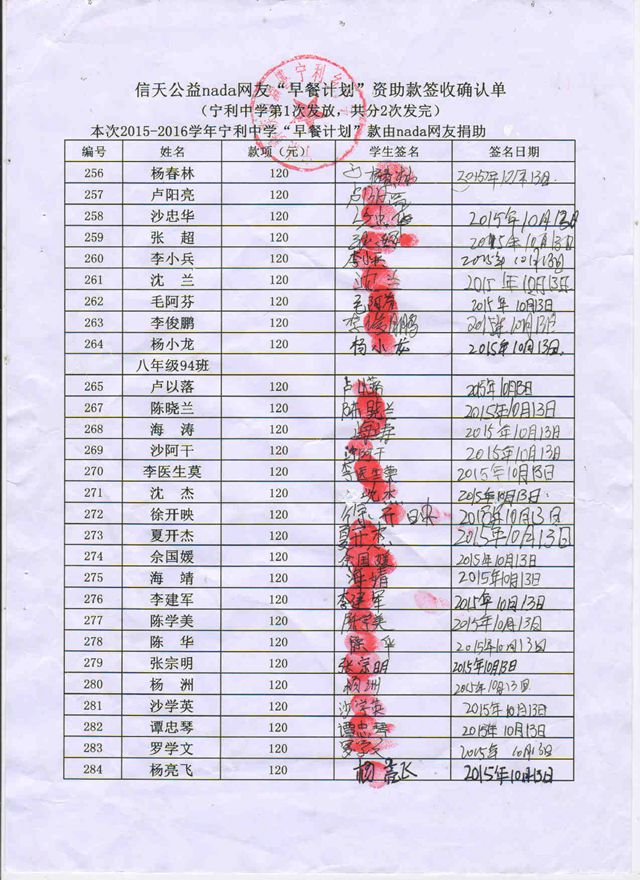 信天公益nada网友“早餐计划”资助款签收确认单
（宁利中学第1次发放，共分2次发完）
本次2015-2016学年宁利中学“早餐计划”款由nada网友捐助
编号 姓名 款项（元） 学生签名 签名日期
256 杨春林 120 杨春林 2015年10月13日.
257 卢阳亮 120 卢阳亮
258 沙忠华 120 沙忠华 2015年10月13日
259 张 超 120 张超 2015年10月13日
260 李小兵 120 李小兵 2015年10月13日
261 沈 兰 120 沈兰 2015年10月13日
262 毛阿芬 120 毛阿芬 2015年10月13日
263 李俊鹏 120 李俊鹏 2015年10月13日
264 杨小龙 120 杨小龙 2015年10月13日.
八年级94班
265 卢以落 120 卢以落 2015年10月13日
267 陈晓兰 120 陈晓兰 2015年10月13日
268 海 涛 120 海涛 2015年10月13日
269 沙阿干 120 沙阿干 2015年10月13日
270 李医生莫 120 李医生莫 2015年10月13日
271 沈 杰 120 沈杰 2015年10月13日.
272 徐开映 120 徐开映 2015年10月13日
273 夏开杰 120 夏开杰 2015年10月13日
274 余国媛 120 余国媛 2015年10月13日
275 海 靖 120 海靖 2015年10月13日
276 李建军 120 李建军 2015年10月13日
277 陈学美 120 陈学美 2015年10月13日
278 陈 华 120 陈华 2015年10月13日
279 张宗明 120 张宗明 2015年10月13日
280 杨 洲 120 杨洲 2015年10月13日.
281 沙学英 120 沙学英 2015年10月13日
282 谭忠琴 120 谭忠琴 2015年10月13日
283 罗学文 120 罗学文 2015年10月13日
284 杨亮飞 120 杨亮飞 2015年10月13日